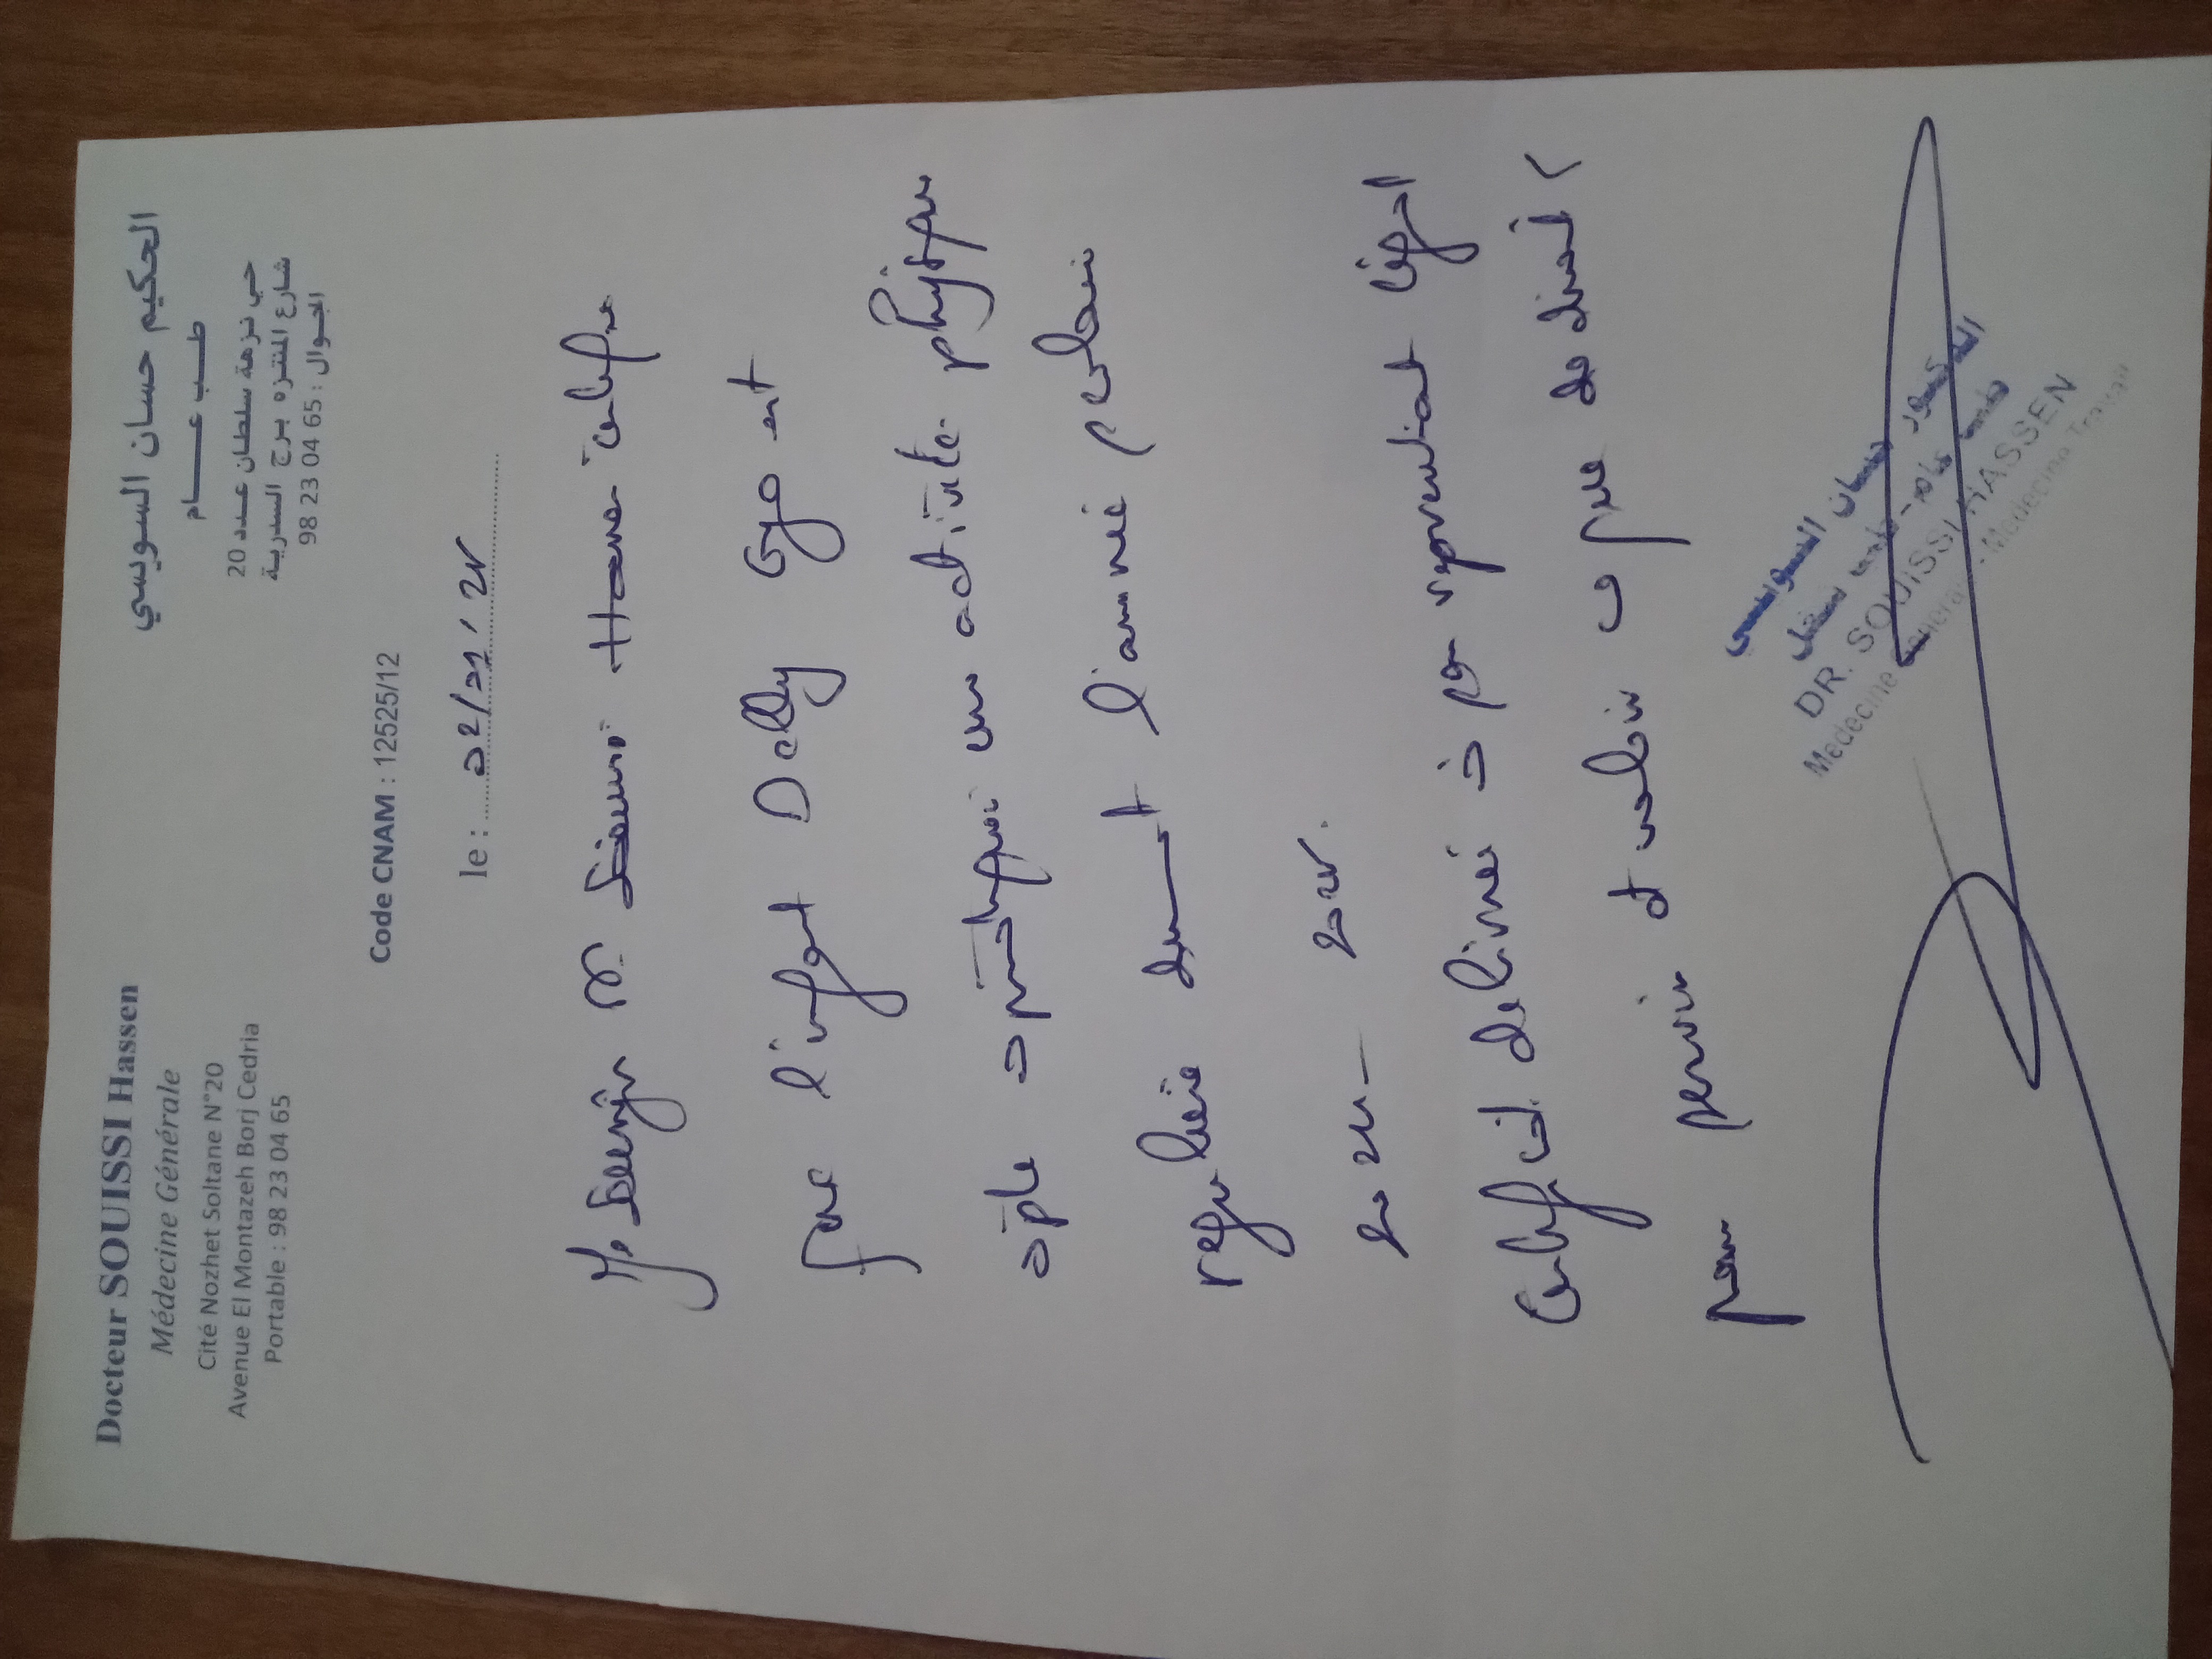 Docteur SOUISSI Hassen
Médecine Générale
Cité Nozhet Soltane N°20
Avenue El Montazeh Borj Cedria
Portable : 98 23 04 65
الحكيم حسان السويسي
طب عام
حي نزهة سلطان عدد 20
شارع المنتزه برج السدرية
الجوال : 98 23 04 65
Code CNAM : 12525/12
le :
Je M Souissi Hassen certifie
que l'enfant Dally est
apte a pratiquer une activité physique
reguliere durant l'année scolaire
Certificat délivré à représentant légal
pour servir et valoir ce que de droit
الدكتور حسان السويسي
DR. SOUISSI HASSEN
Medecine Generale - Medecine Travail